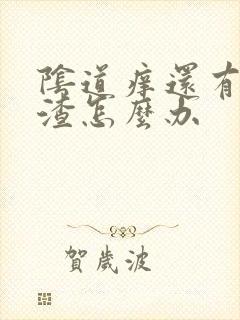 陰道癢還有
渣怎麼办
賀歲波